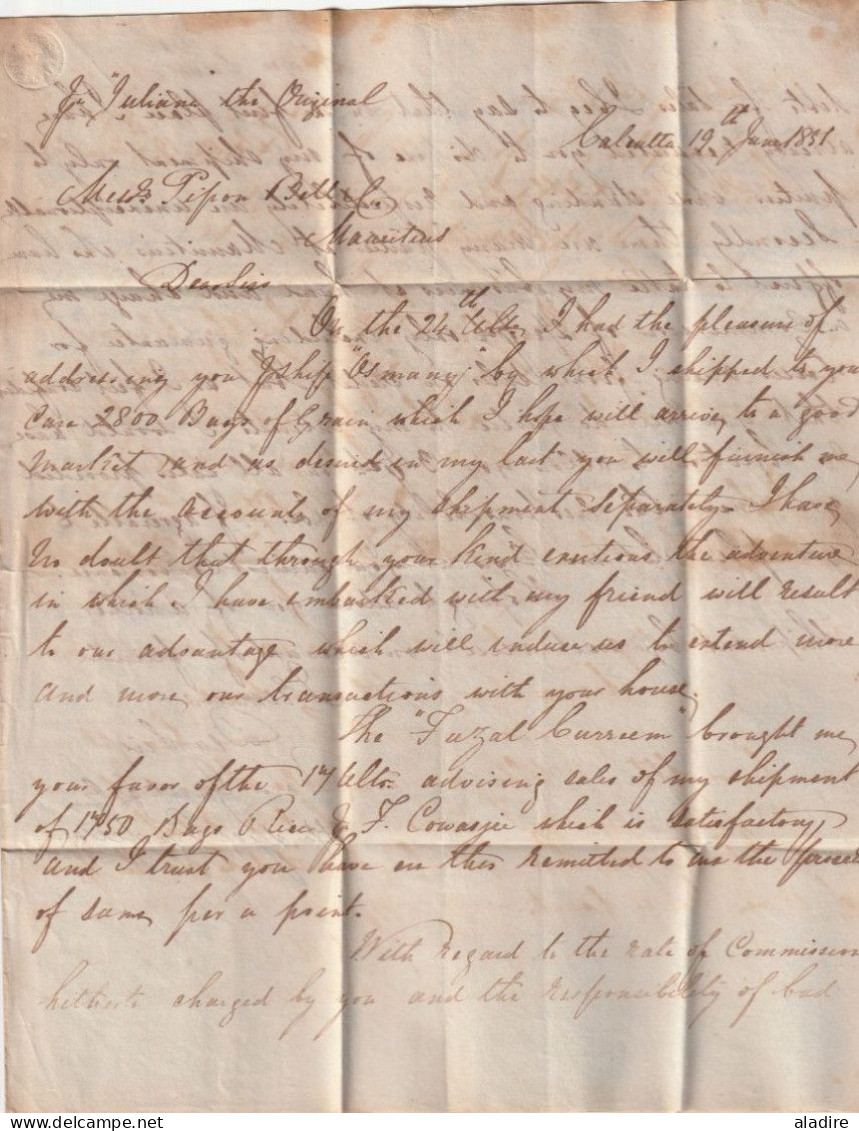 "Juliana" the Original
Calcutta 19th June 1851
Messrs Pipon Bell & Co
Mauritius
Dear Sirs
On the 24th Ulto I had the pleasure of
addressing you ship "Osmany" by which I shipped to your
Care 2800 Bags of Grain which I hope will arrive to a good
market and as desired in my last you will furnish me
with the accounts of my shipment separately. I have
no doubt that through your kind exertions the adventure
in which I have embarked with my friend will result
to our advantage which will induce us to extend more
and more our transactions with your house.
The "Fuzal Curreem" brought me
your favor of the 17 Ulto advising sales of my shipment
of 1750 Bags Rice F. Cowasjee which is satisfactory
and I trust you have ere this remitted to me the
of same per a point.
With regard to the rate of Commission
hitherto charged by you and the responsibility of bad
aladire